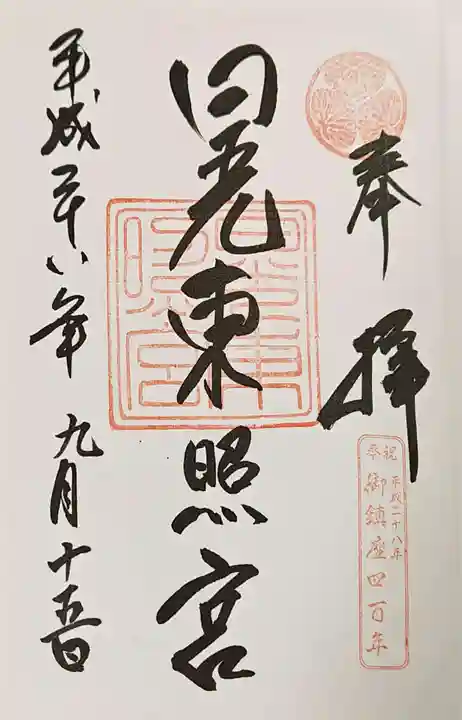 奉拝
奉祝
平成二十八年
御鎮座四百年
日光東照宮
平成二十八年九月十五日